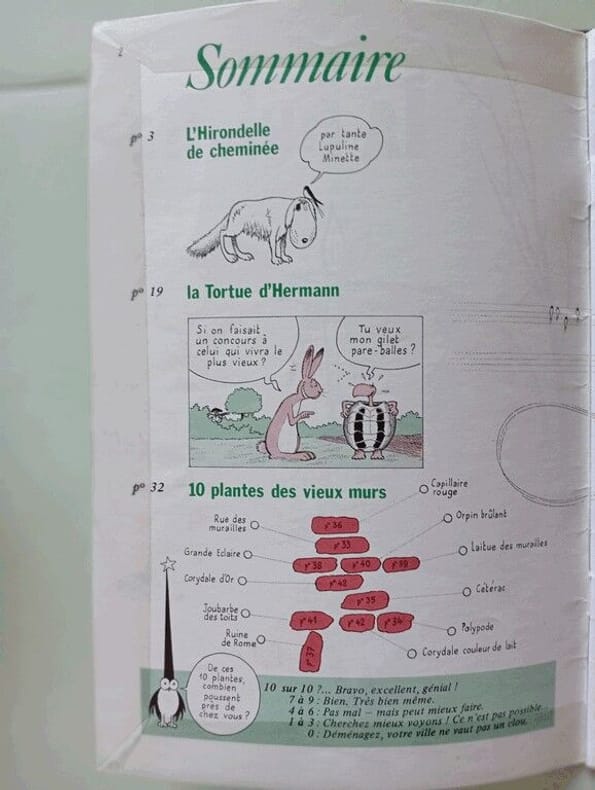 2
Sommaire
p° 3
L'Hirondelle
de cheminée
par tante
Lupuline
Minette
p° 19
la Tortue d'Hermann
Si on faisait
un concours à
celui qui vivra le
plus vieux ?
Tu veux
mon gilet
pare-balles ?
p° 32
10 plantes des vieux murs
Capillaire
rouge
Rue des
murailles
p° 36
Orpin brûlant
p° 33
Grande Eclaire
p° 38
p° 40
p° 39
Laitue des murailles
Corydale d'Or
p° 42
p° 35
Cétérac
Joubarbe
des toits
p° 41
p° 42
p° 34
Polypode
Ruine
de Rome
p° 37
Corydale couleur de lait
De ces
10 plantes,
combien
poussent
près de
chez vous ?
10 sur 10 ?... Bravo, excellent, génial !
7 à 9 : Bien. Très bien même.
4 à 6 : Pas mal – mais peut mieux faire.
1 à 3 : Cherchez mieux voyons ! Ce n'est pas possible...
0 : Déménagez, votre ville ne vaut pas un clou.